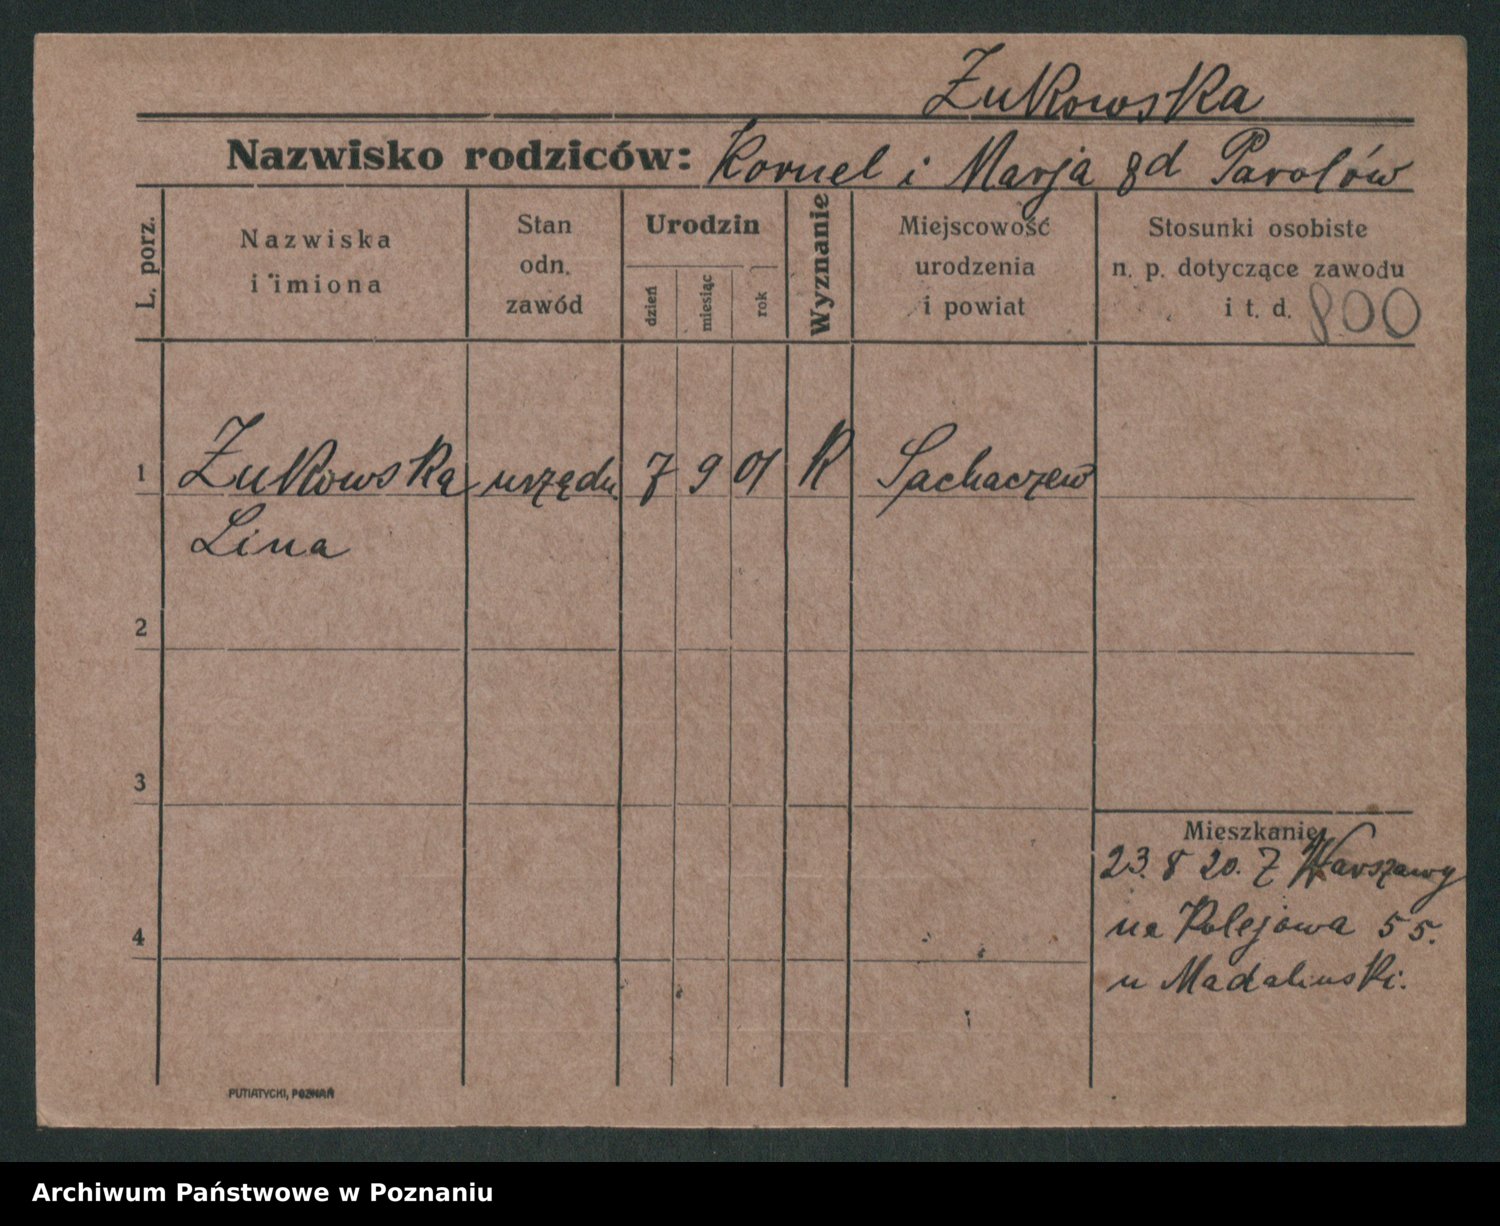 Żukowska
Nazwisko rodziców: Kornel i Marja z d Parolów
L. porz.
Nazwiska
i imiona
Stan
odn.
zawód
Urodzin
dzień
miesiąc
rok
Wyznanie
Miejscowość
urodzenia
i powiat
Stosunki osobiste
n. p. dotyczące zawodu
i t. d. 800
1 Żukowska urzędn. 7 9 01 K Sachaczew
Lina
2
3
4
Mieszkanie
23. 8 20. Z Warszawy
na Kolejowa 55.
u Madaliński.
PUTIATYCKI, POZNAŃ
Archiwum Państwowe w Poznaniu